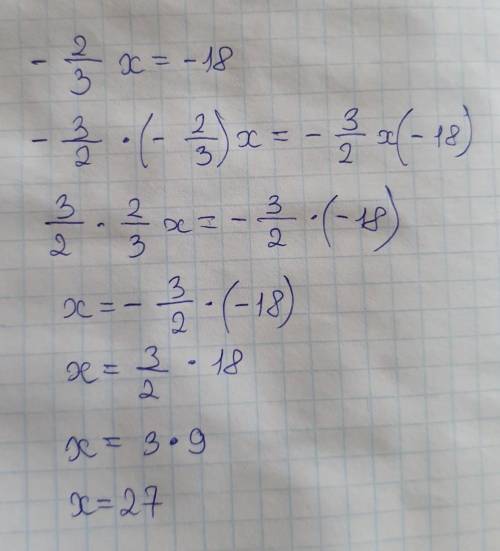 - 2/3 x = -18
- 3/2 · (- 2/3) x = - 3/2 x (-18)
3/2 · 2/3 x = - 3/2 · (-18)
x = - 3/2 · (-18)
x = 3/2 · 18
x = 3 · 9
x = 27